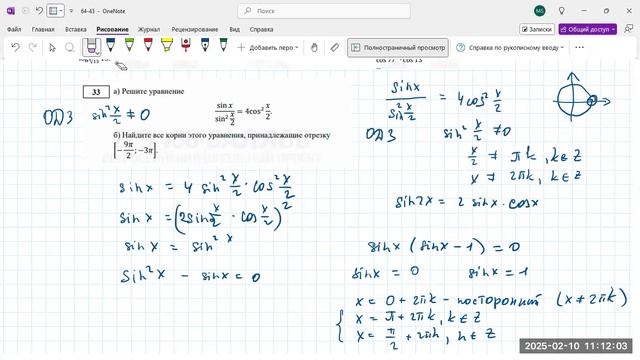 64-43 - OneNote
Поиск
MS
Файл Главная Вставка Рисование Журнал Рецензирование Вид Справка
Добавить перо
Полностраничный просмотр
Справка по рукописному вводу
33 а) Решите уравнение
sin x / sin² x/2 = 4cos² x/2.
б) Найдите все корни этого уравнения, принадлежащие отрезку
[-9π/2; -3π].
ОДЗ sin² x/2 ≠ 0
sinx = 4 sin² x/2 · cos² x/2
sinx = (2sin x/2 · cos x/2)²
sinx = sin² x
Sin²x - sinx = 0
Sinx / sin² x/2 = 4cos² x/2
ОДЗ sin² x/2 ≠ 0
x/2 ≠ πk, k∈Z
x ≠ 2πk, k∈Z
Sin2x = 2 sinx · cosx
Sinx (sinx - 1) = 0
Sinx = 0 sinx = 1
x = 0 + 2πk - посторонний (x ≠ 2πk)
x = π + 2πk, k∈Z
x = π/2 + 2πn, n∈Z
2025-02-10 11:12:03